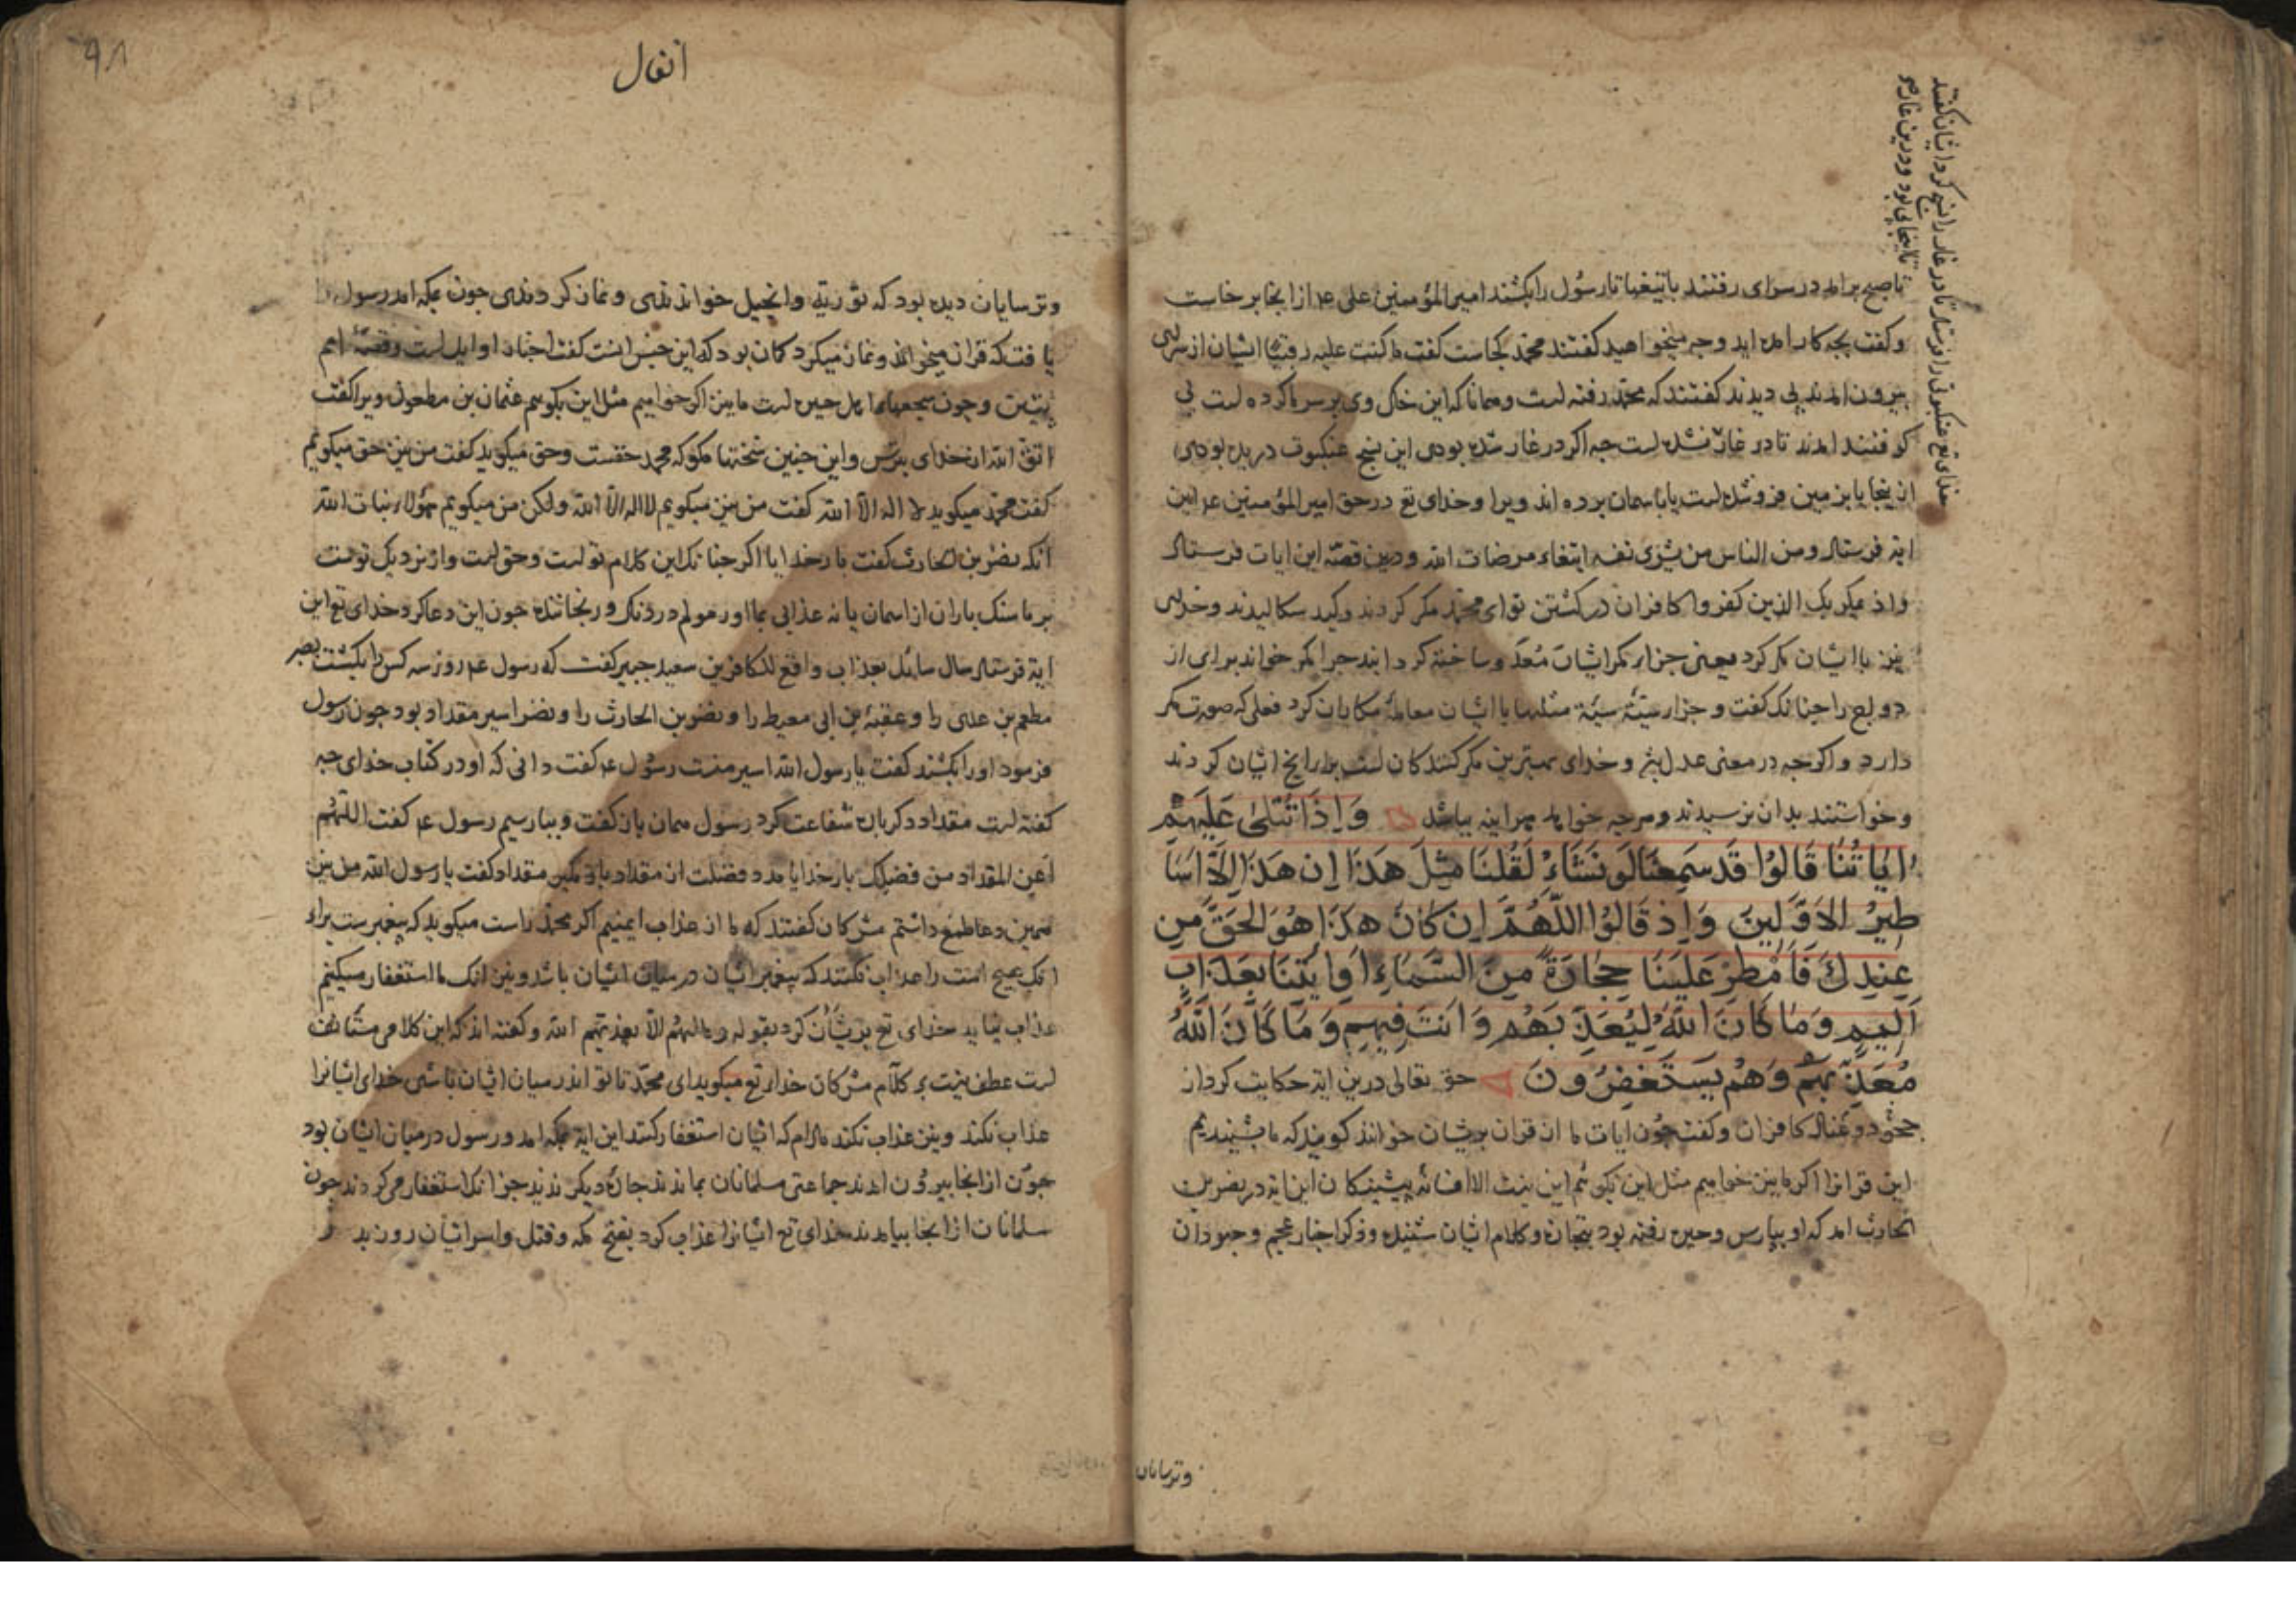 خدای تع عنکبوتی را فرستاد تا در غار را نسج کرد ایشان گفتند
تا اینجا پی بود و درین غار
تا صبح برامد در سرای رفتند با تیغها تا رسول را بکشند امیر المؤمنین علی ع م از انجا بر خاست
و گفت بچه کار امده اید و چه میخواهید گفتند محمد کجاست گفت ما کنت علیه رقیبا ایشان از سرای
بیرون امدند پی دیدند گفتند که محمد رفته است و همانا که این خاک وی بر سر ما کرده است پی
کرفتند امدند تا در غار نشده است چه اکر در غار شده بودی این نسج عنکبوت دریده بودی
از ینجا یا بزمین فرو شده است یا باسمان برده اند ویرا و خدای تع در حق امیر المؤمنین ع م این
ایة فرستاد و من الناس من یشری نفسه ابتغاء مرضات الله و درین قصّه این ایات فرستاد
واذ یمکر بک الذین کفروا کافران در کشتن تو ای محمد مکر کردند و کید سکالیدند و خدای
نیز با ایشان مکر کرد یعنی جزاء مکر ایشان مُعدّ و ساخته کردانید جرا مکر خواند برای از
دواج را چنانک گفت و جزاء سیّئة سیّئة مثلها یا با ایشان معامله مکاران کرد فعلی که صورت مکر
دارد و اکرچه در معنی عدل باشد و خدای بهترین مکر کنندکان است برای انج ایشان کردند
و خواستند بدان نرسیدند و هرچه خواهد هر اینه بباشد وَاِذَا تُتْلٰی عَلَیْهِمْ
اٰیَاتُنَا قَالُوْا قَد سَمِعْنَا لَو نَشَاءُ لَقُلنَا مِثْلَ هَذَا اِن هَذَا اِلَّا اَسَا
طِیْرُ الاَوَّلِینَ وَاِذ قَالُوْا اللّٰهُمَّ اِن کَانَ هَذَا هُوَ الحَقَّ مِن
عِنْدِکَ فَاَمْطِرْ عَلَیْنَا حِجَارَةً مِنَ السَّمَاءِ اَوِایْتِنَا بِعَذَابٍ
اَلِیْمٍ وَمَا کَانَ اللّٰهُ لِیُعَذِّبَهُم وَاَنتَ فِیْهِم وَمَا کَانَ اللّٰهُ
مُعَذِّبَهُمْ وَهُمْ یَسْتَغْفِرُونَ حق تعالی درین ایه حکایت کرد از
جحود و عناد کافران و گفت چون ایات ما از قران بریشان خوانند کویند که ما بشنیدیم
این قرانرا اکر ما نیز خواهیم مثل این بکوئیم این نیست الا افسانه پیشینکان این ایة در نضر بن
الحارث امد که او بپارس و حیره رفته بود بتجارت و کلام ایشان شنیده و ذکر اخبار عجم و جهودان
وترسایان
انفال
۹۸
وترسایان دیده بود که توریة و انجیل خواندندی و نماز کردندی چون بمکه امد رسول را
یافت که قران میخواند و نماز میکرد کمان بود که این جنس انست کفت اخبار اوایل است و قصّهٔ امم
پیشین و چون سجعهاء اهل حیره است ما نیز اکر خواهیم مثل این بکوییم عثمان بن مظعون ویرا گفت
اتّق الله از خدای بترس و این چنین سخنها مکو که محمد حقست و حق میکوید گفت من نیز حق میکویم
گفت محمد میکوید لا اله الّا الله گفت من نیز میکویم لا اله الا الله ولکن من میکویم هؤلاء بنات الله
انکه نضر بن الحارث گفت بار خدایا اکر چنانک این کلام تو است و حق است و از نزدیک توست
بر ما سنک باران از اسمان یا نه عذابی بما اور مولم دردناک و رنجاننده چون این دعا کرد خدای تع این
ایة فرستاد سال سائل بعذاب واقع للکافرین سعید جبیر گفت که رسول ع م روز سه کس را بکشت بصبر
مطعم بن عدی را و عقبة بن ابی معیط را و نضر بن الحارث را و نضر اسیر مقداد بود چون رسول
فرمود او را بکشند گفت یا رسول الله اسیر منست رسول ع م گفت دانی که او در کتاب خدای چه
گفته است مقداد دکر باره شفاعت کرد رسول همان باز گفت و ببار سیم رسول ع م گفت اللّهُمّ
اَغن المقداد من فضلک بار خدایا مدد فضلت از مقداد باز مکیر مقداد گفت یا رسول الله من نیز
همین دعا طمع داشتم مشرکان گفتند که ما از عذاب ایمنیم اکر محمد راست میکوید که پیغمبرست برای
انک هیچ امت را عذاب نکنند که پیغمبر ایشان در میان ایشان باشد و نیز انک ما استغفار میکنیم
عذاب نیاید خدای تع بریشان رد کرد بقوله و ما لهم الّا یعذبهم الله و کفته اند که این کلامی مستأنف
است عطف نیست بر کلام مشرکان خدای تع میکوید ای محمد تا تو اندر میان ایشان باشی خدای ایشانرا
عذاب نکند و نیز عذاب نکند مادام که ایشان استغفار کنند این ایة بمکه امد و رسول در میان ایشان بود
چون از انجا بیرون امدند جماعتی مسلمانان بماندند جاره دیکر ندیدند جز انک استغفار می کردند چون
مسلمانان از انجا بیامدند خدای تع ایشانرا عذاب کرد بفتح مکه و قتل و اسر ایشان روز بد ر